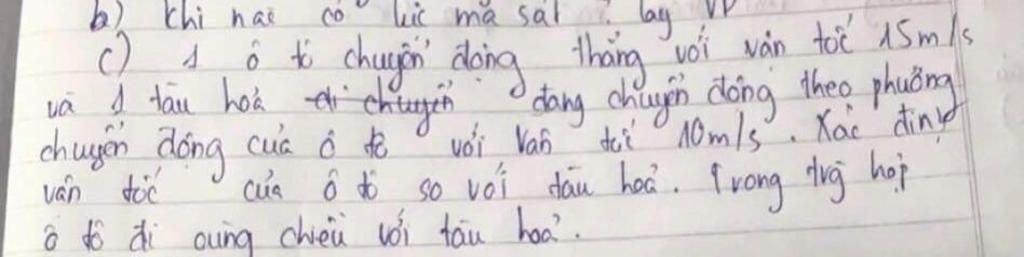 b) Khi nào có lực ma sát ? lấy VD
c) 1 ô tô chuyển động thẳng với vận tốc 15m/s
và 1 tàu hoả đi chuyển đang chuyển động theo phương
chuyển động của ô tô với vận tốc 10m/s. Xác định
vận tốc của ô tô so với tàu hoả. Trong trg hợp
ô tô đi cùng chiều với tàu hoả.